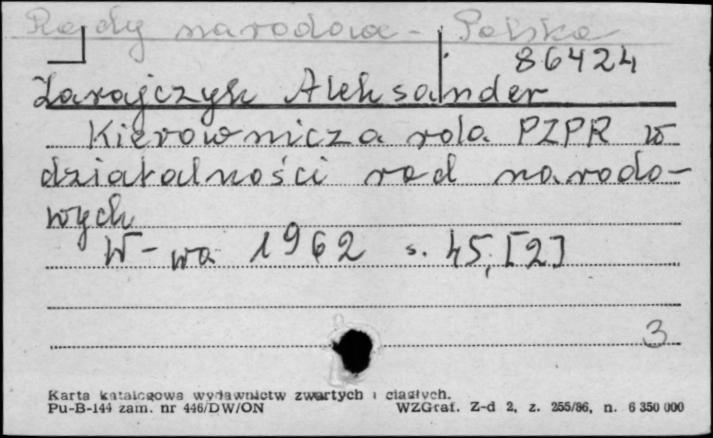 Rady narodowe - Polska
86424
Zarajczyk Aleksander
Kierownicza rola PZPR w
działalności rad narodo-
wych
W-wa 1962 s. 45, [2]
3
Karta katalogowa wydawnictw zwartych i ciągłych.
Pu-B-144 zam. nr 446/DW/ON WZGraf. Z-d 2, z. 255/86, n. 6 350 000